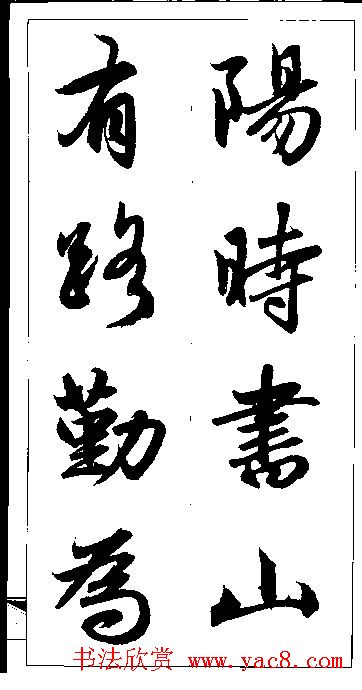 陽時書山
有路勤為
书法欣赏 www.yac8.com